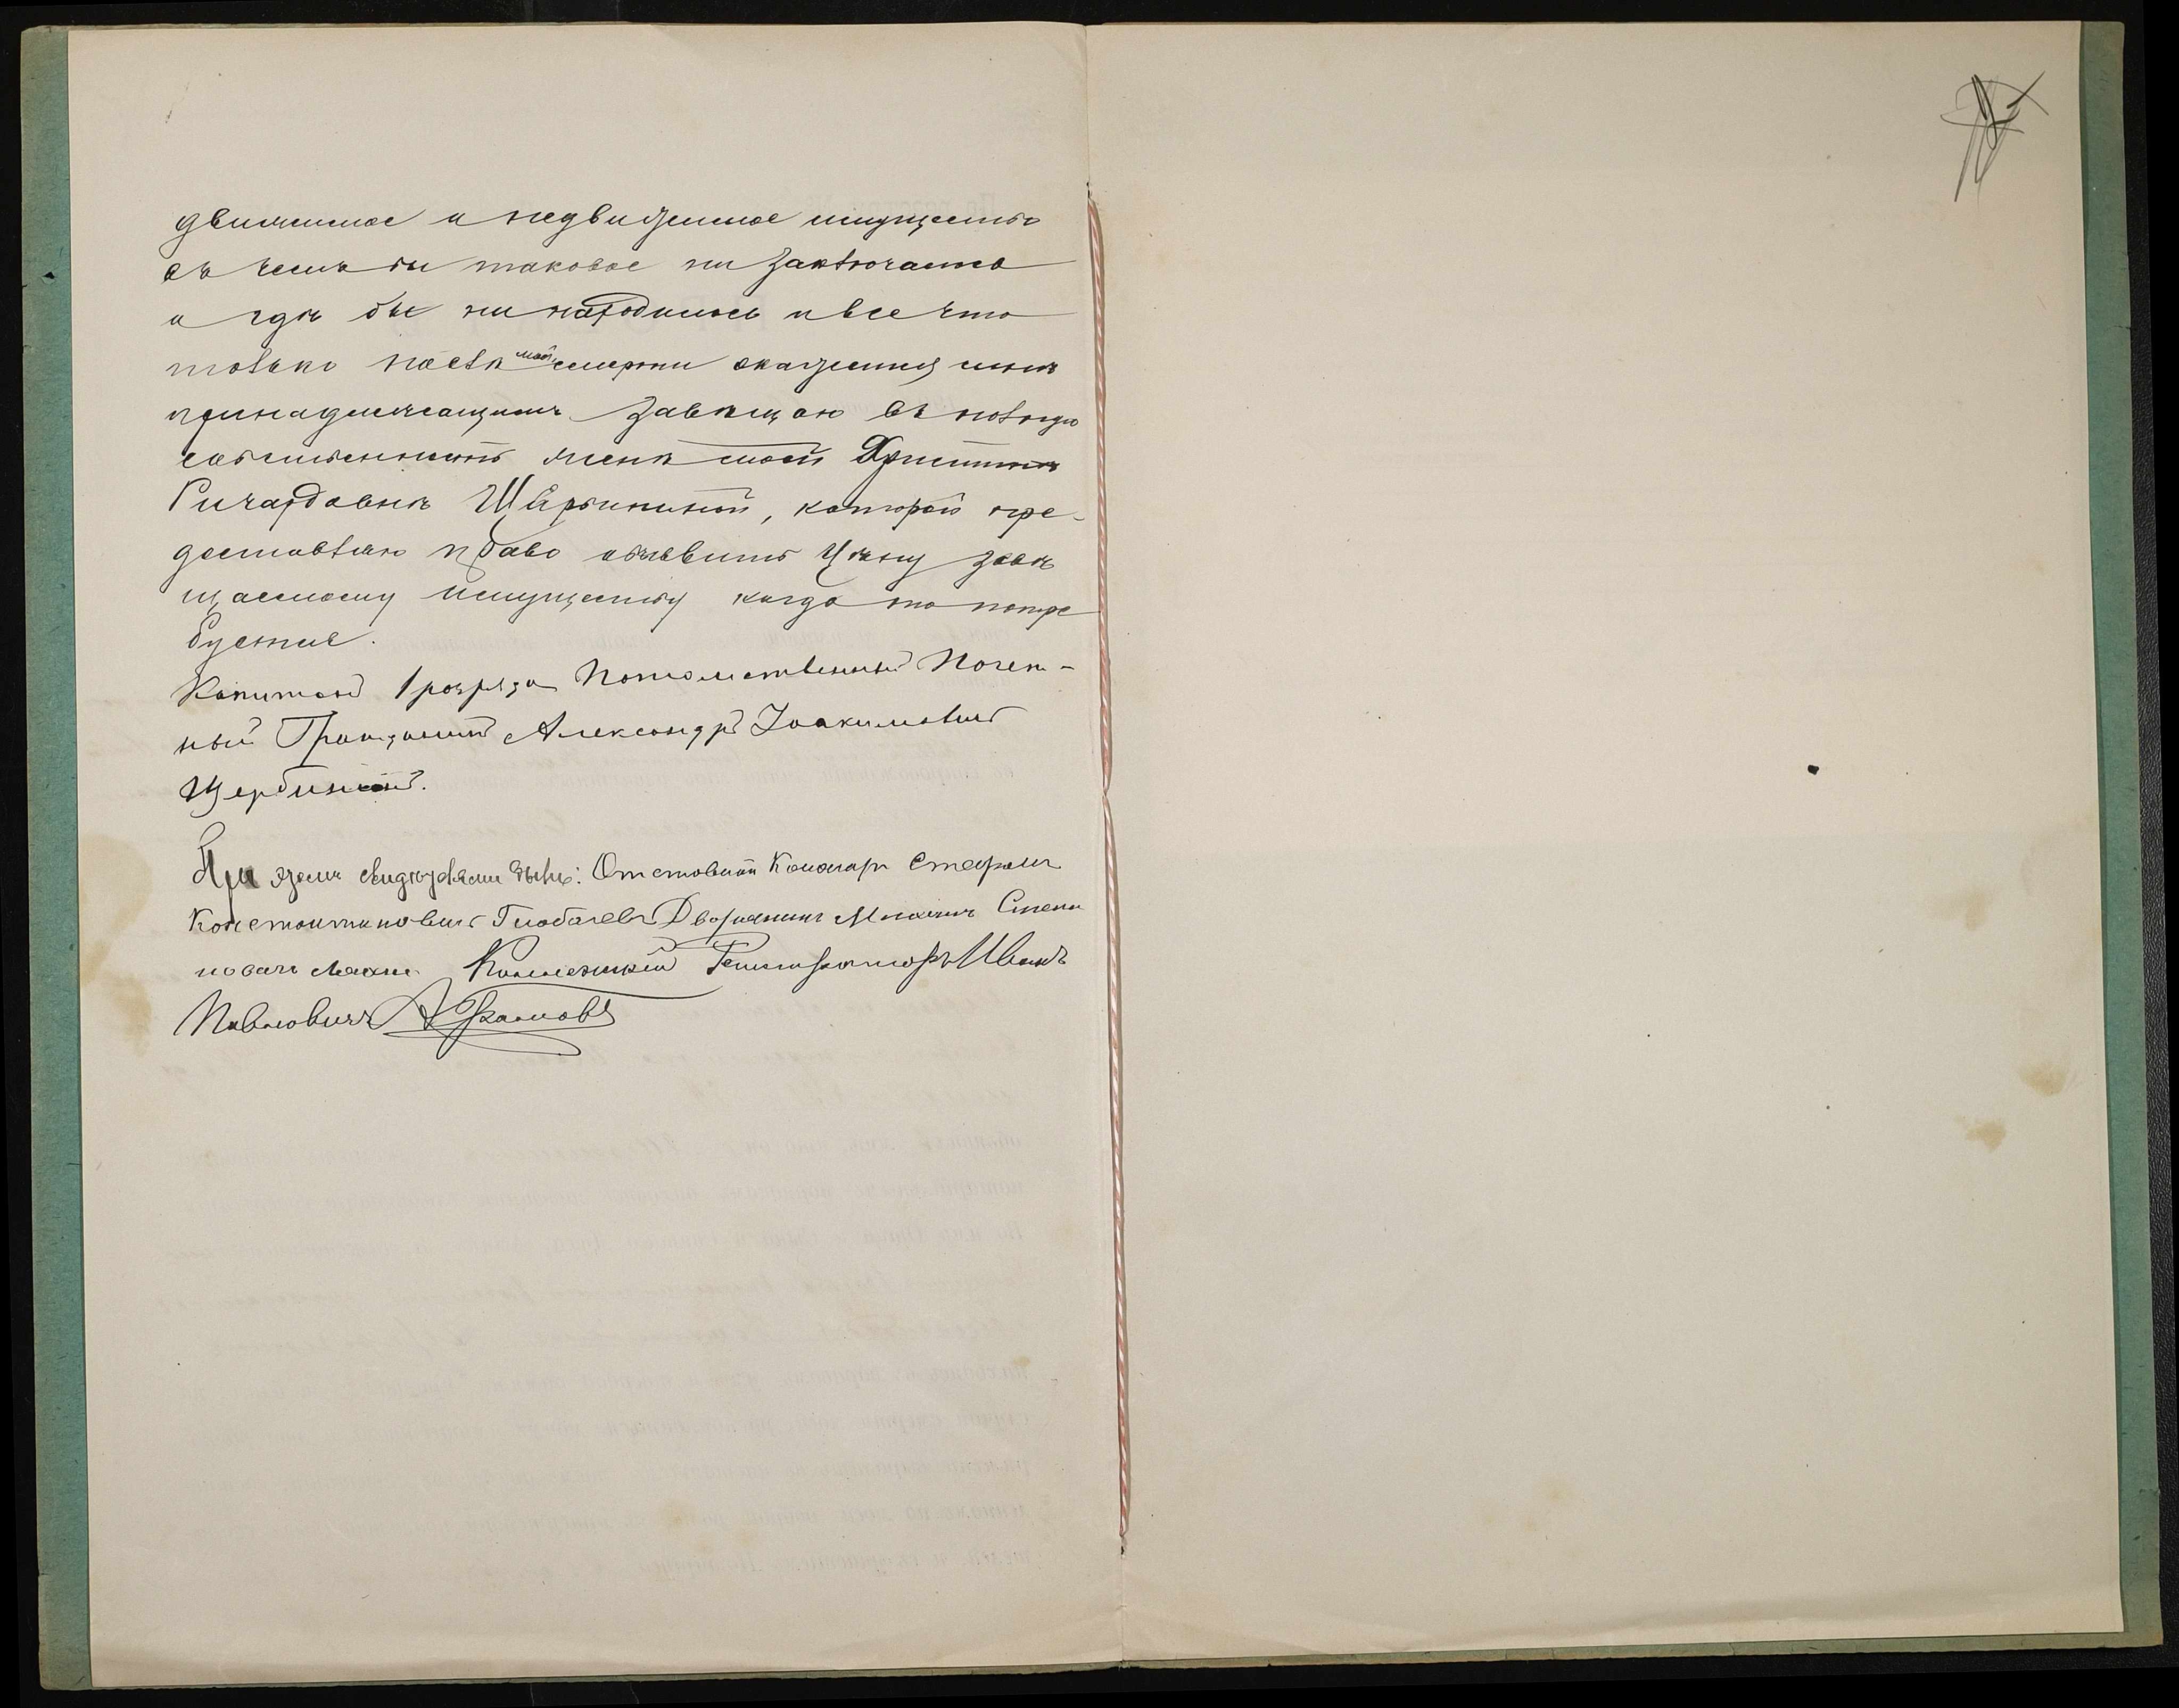 движимое и недвижимое имущество
въ чемъ бы таковое ни заключалось
и гдѣ бы ни находилось и все что
только послѣ моей смерти окажется мнѣ
принадлежащимъ завѣщаю въ полную
собственность женѣ моей Христинѣ
Ричардовнѣ Щербининой, которой пре-
доставляю право объявить цѣну завѣ
щаемому имуществу когда то потре
буется.
Капитанъ 1 розряда Потомственный Почет-
ный Гражданинъ Александръ Іоакимовичъ
Щербининъ.
При земъ свидѣтелями были: Отставной Стефанъ
Константиновичъ Дворянинъ Степа
новичъ Коллежскій Регистраторъ Иванъ
Павловичъ